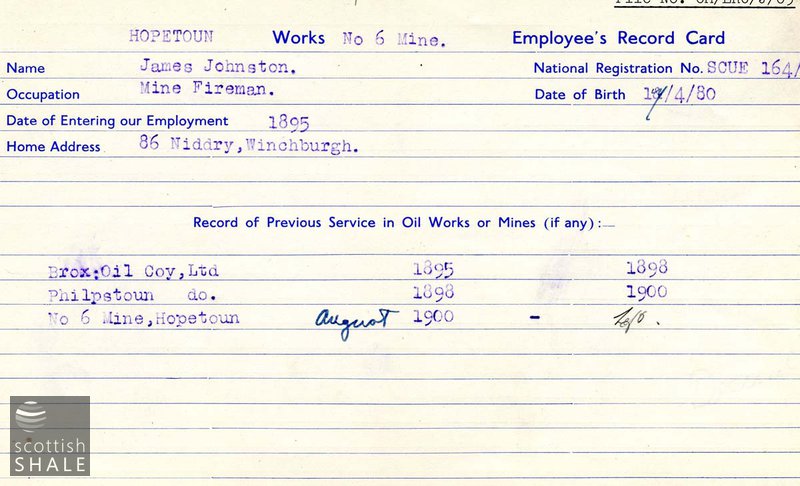 HOPETOUN Works No 6 Mine. Employee's Record Card
Name James Johnston. National Registration No. SCUE 164/
Occupation Mine Fireman. Date of Birth /4/80
Date of Entering our Employment 1895
Home Address 86 Niddry,Winchburgh.
Record of Previous Service in Oil Works or Mines (if any):—
Brox:Oil Coy,Ltd 1895 1898
Philpstoun do. 1898 1900
No 6 Mine,Hopetoun August 1900 -
scottish
SHALE